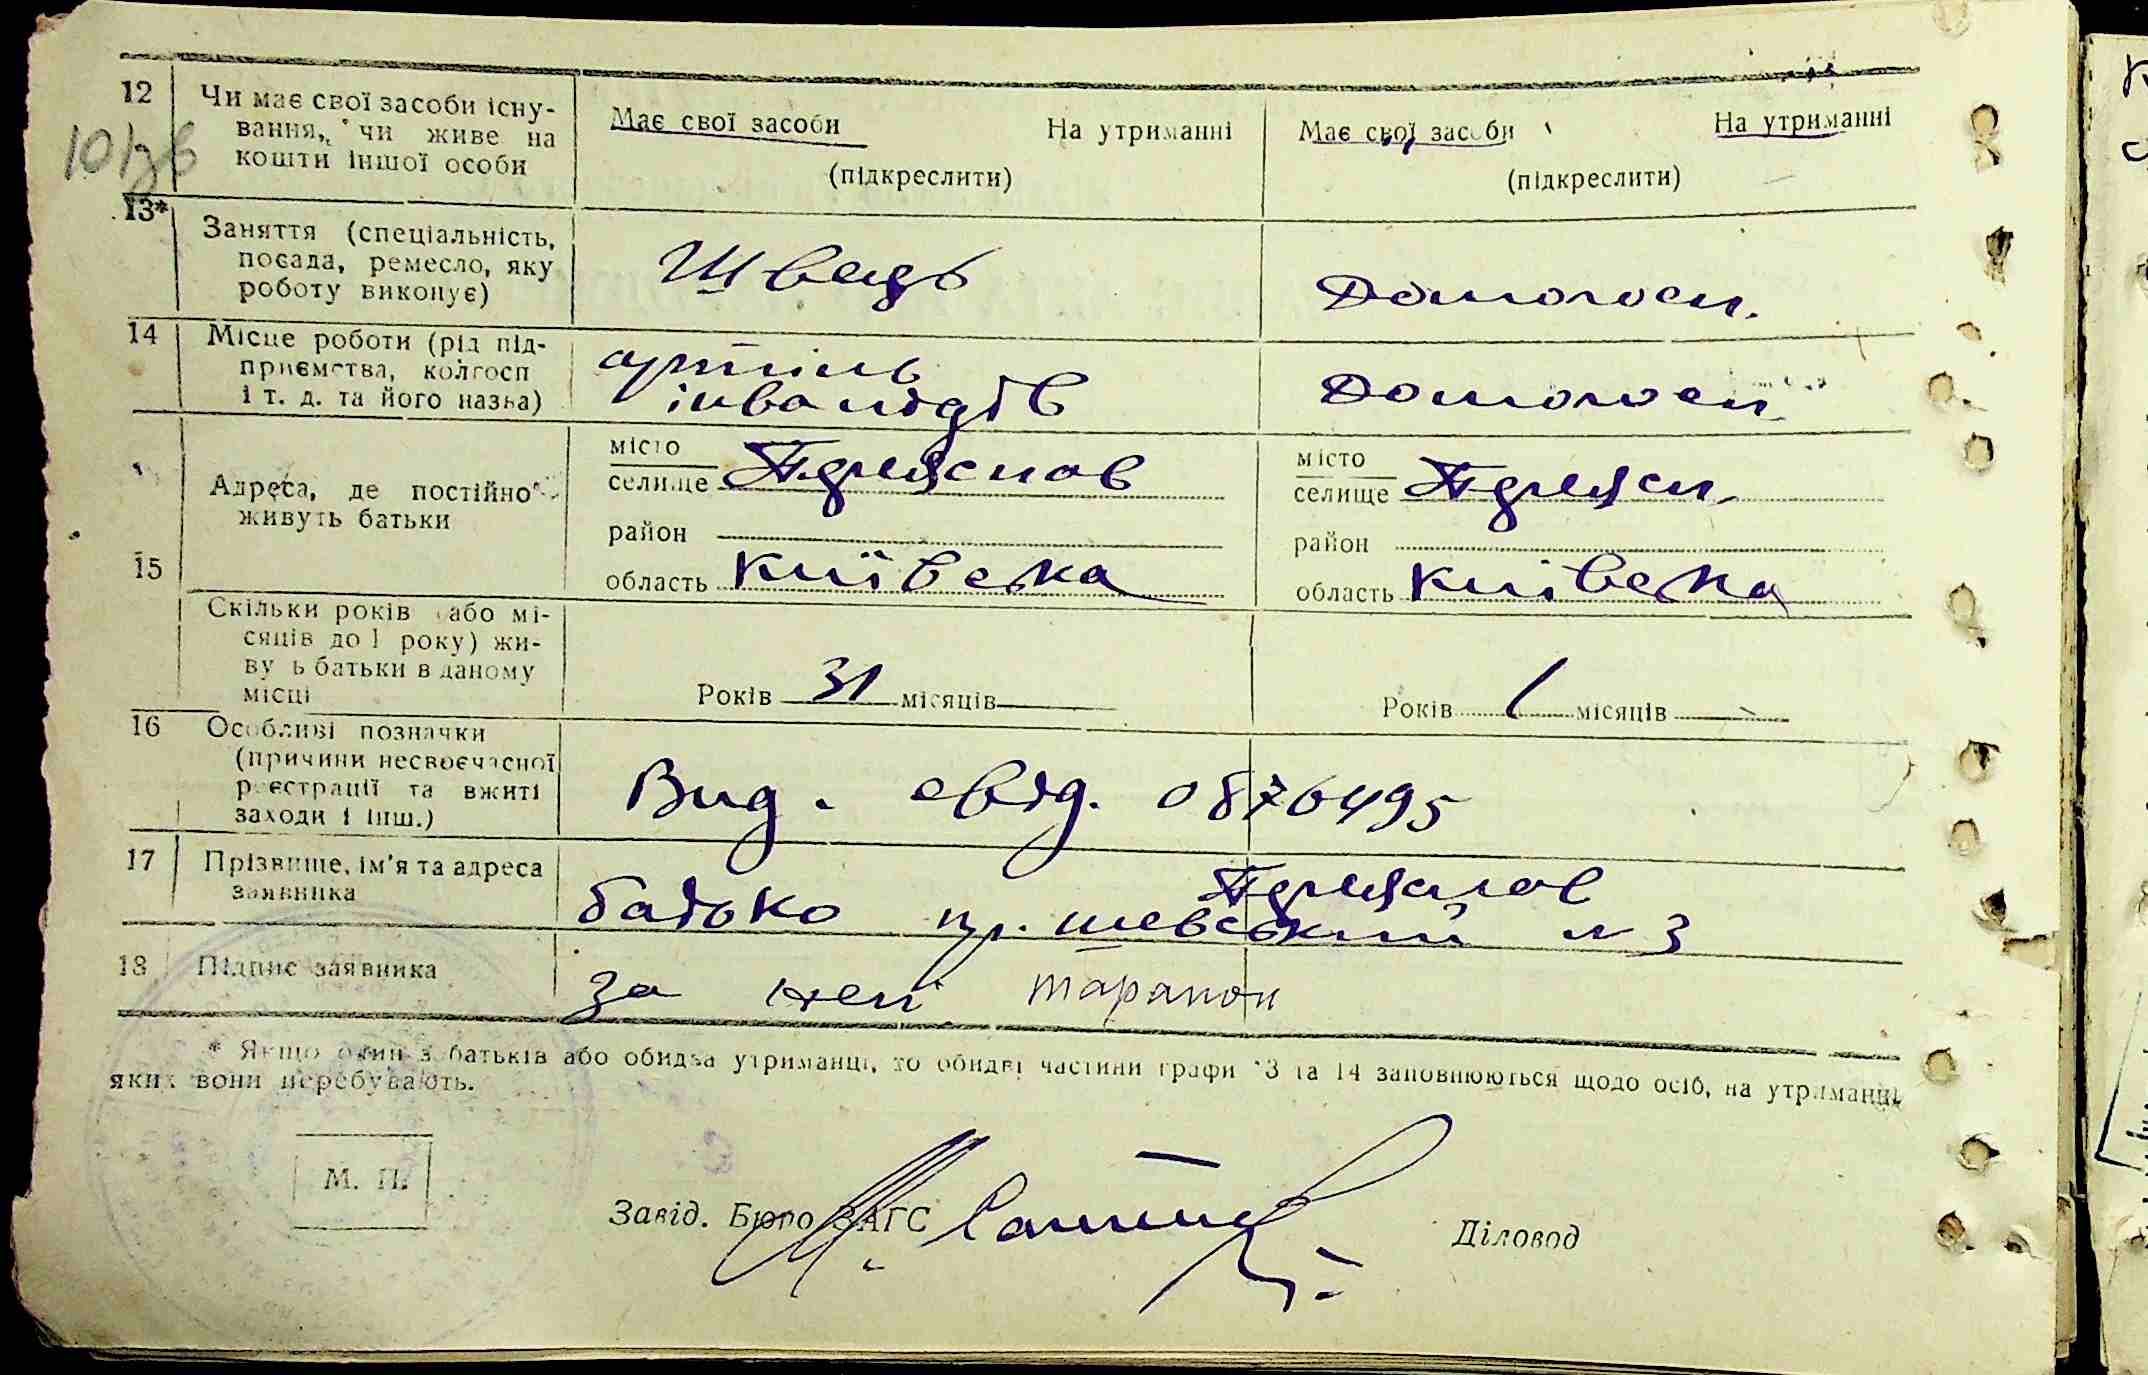 12
Чи має свої засоби існу-
вання, чи живе на
кошти іншої особи
Має свої засоби На утриманні
(підкреслити)
Має свої засоби На утриманні
(підкреслити)
13*
Заняття (спеціальність,
посада, ремесло, яку
роботу виконує)
Швець
Домогосп.
14
Місце роботи (рід під-
приємства, колгосп
і т. д. та його назва)
артіль
інвалідів
Домогосп
15
Адреса, де постійно
живуть батьки
місто
селище
район
область Київська
місто
селище
район
область Київська
Скільки років (або мі-
сяців до 1 року) жи-
вуть батьки в даному
місці
Років 31 місяців
Років 1 місяців
16
Особливі позначки
(причини несвоєчасної
реєстрації та вжиті
заходи і інш.)
Вид. свід. 0876495
17
Прізвище, ім'я та адреса
заявника
батько
пр. шевський № 3
18
Підпис заявника
за неп
* Якщо один з батьків або обидва утриманці, то обидві частини графи 13 та 14 заповнюються щодо осіб, на утриманні
яких вони перебувають.
М. П.
Завід. Бюро ЗАГС
Діловод